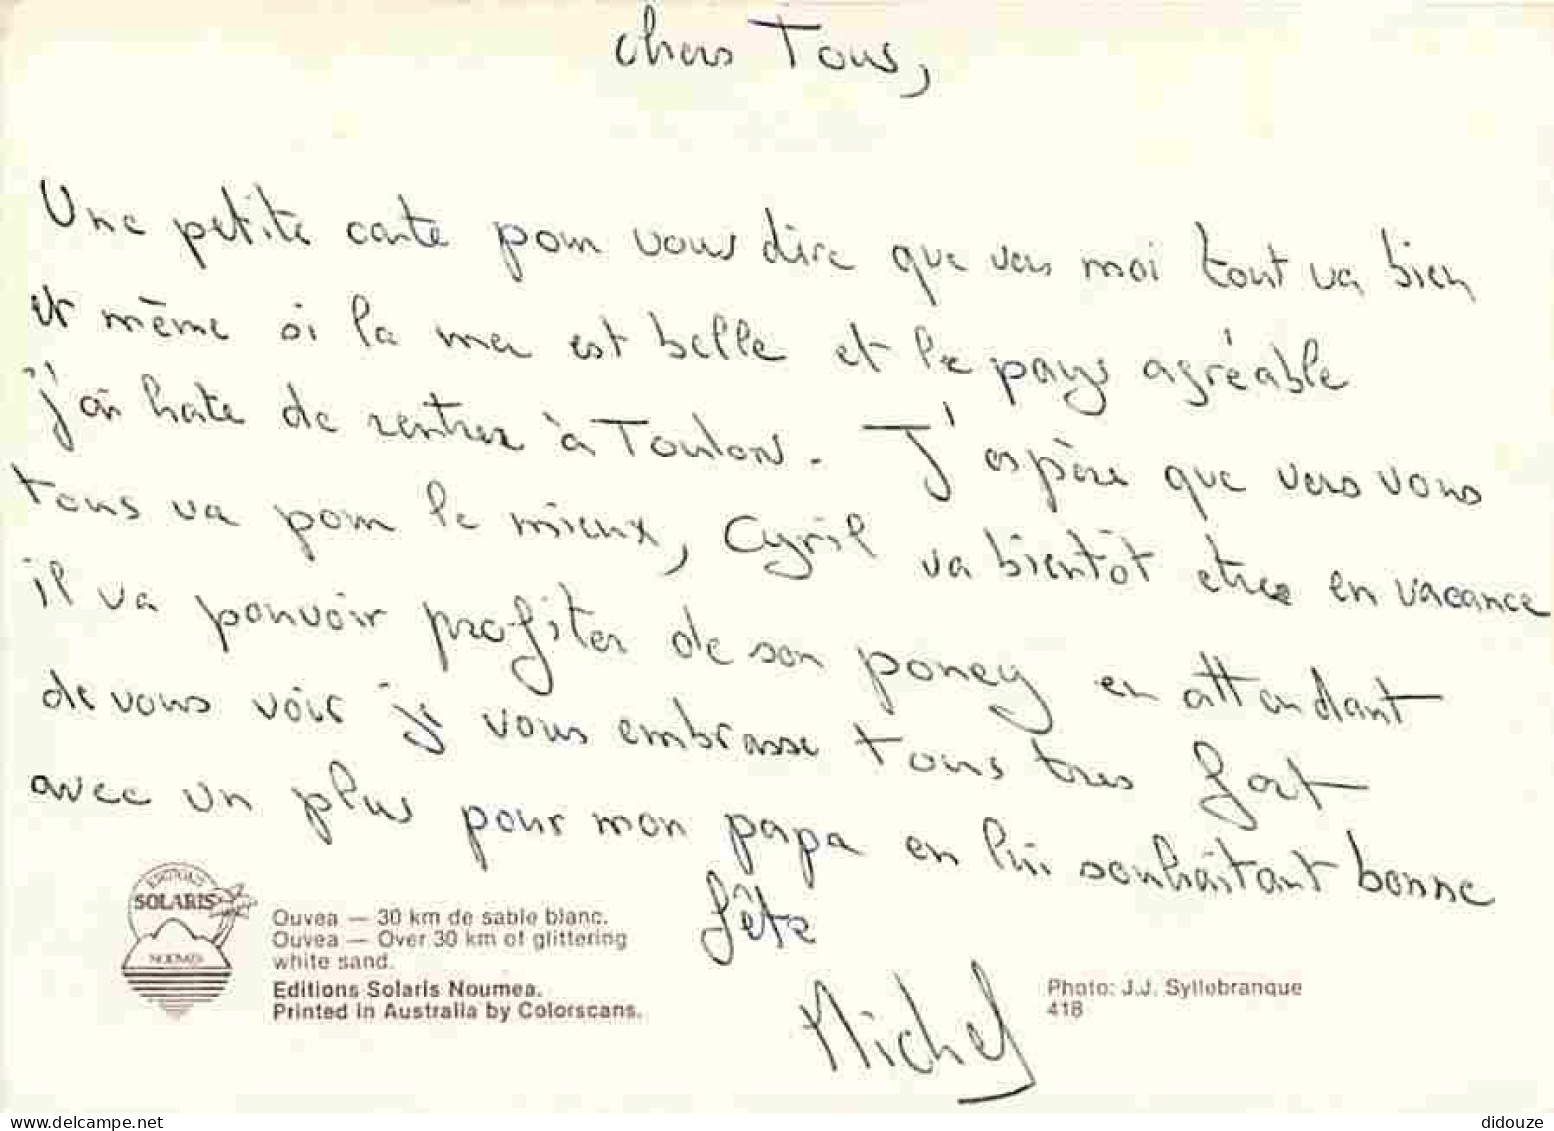 chers Tous,
Une petite carte pour vous dire que vers moi tout va bien
et même si la mer est belle et le pays agréable
j'ai hate de rentrer à Toulon. J'espère que vers vous
tous va pour le mieux, Cyril va bientôt etre en vacance
il va pouvoir profiter de son poney en attendant
de vous voir je vous embrasse tous tres fort
avec un plus pour mon papa en lui souhaitant bonne
fête
Michel
EDITIONS
SOLARIS
NOUMEA
Ouvea — 30 km de sable blanc.
Ouvea — Over 30 km of glittering
white sand.
Editions Solaris Noumea.
Printed in Australia by Colorscans.
Photo: J.J. Syllebranque
418
delcampe.net
didouze